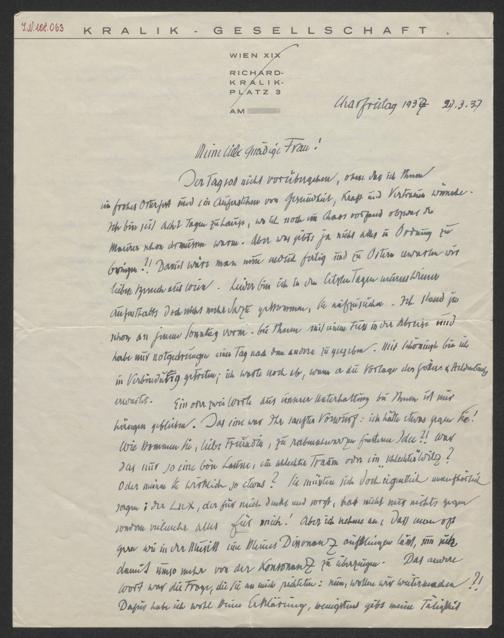 I.N. 101.063
KRALIK - GESELLSCHAFT.
WIEN XIX
RICHARD-
KRALIK-
PLATZ 3
AM
Charfreitag 1937 27.3.37
Meine liebe gnädige Frau!
Der Tag soll nicht vorübergehen, ohne das ich Ihnen
ein frohes Osterfest und ein Auferstehen von Gesundheit, Kraft und Vertrauen wünsche.
Ich bin seit acht Tagen zuhause, wo ich noch ein Chaos vorfand obzwar die
Maurer schon draussen waren. Aber was gibts ja nicht alles in Ordnung zu
bringen!! Damit wäre man nun endlich fertig und zu Ostern erwarten wir
lieben Besuch aus Wien. Leider bin ich in den letzten Tagen unseres Wiener
Aufenthalts doch nicht mehr dazu gekommen, Sie aufzusuchen. Ich stand ja
schon an jenem Sonntag vorm. bei Ihnen mit einem Fuss in der Abreise und
habe nur notgedrungen einen Tag nach dem andern zugegeben. Mit Schöningh bin ich
in Verbindung getreten; ich warte noch ab, wann er die Vorlage des
erwartet. Ein oder zwei Worte aus unserer Unterhaltung bei Ihnen ist mir
hängen geblieben. Das eine war Ihr sanfter Vorwurf: ich hätte etwas gegen Sie!
Wie kommen Sie, liebe Freundin, zu rabenschwarzen finsteren Idee?! War
das nur so eine böse Laune, ein schlechter Traum oder ein "schlechter Witz"?
Oder meinen Sie wirklich so etwas? Sie müssten sich doch eigentlich
sagen: der Lux, der für mich denkt und sorgt, hat nicht nur nichts gegen
sondern vielmehr alles für mich! Aber ich nehme an, dass man oft
gern wie in der Musik eine kleine Dissonanz aufklingen lässt, um sich
damit umso mehr von der Konsonanz zu überzeugen. Das andere
Wort war die Frage, die Sie an mich richteten: nun, wollen wir weitermachen?!
Dafür habe ich wohl keine Erklärung, wenigstens gibt meine Tätigkeit